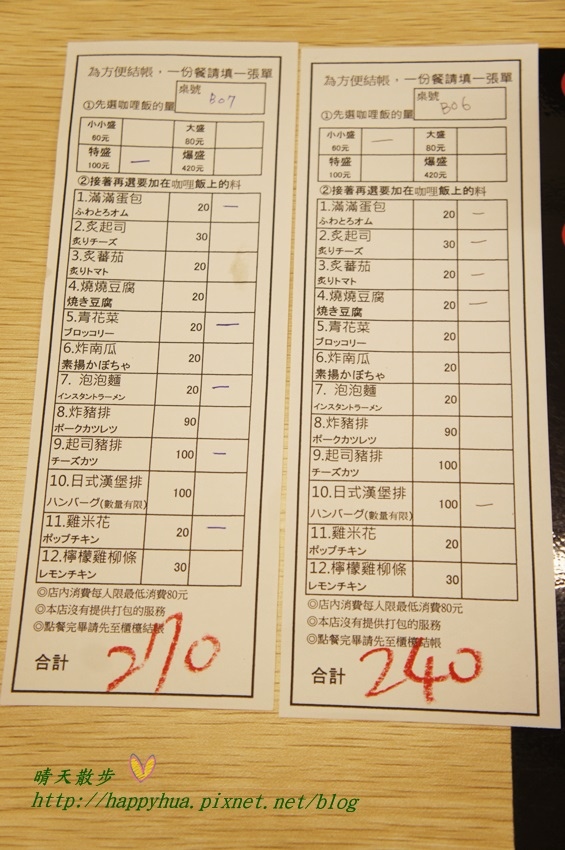 為方便結帳，一份餐請填一張單
①先選咖哩飯的量 桌號 B07
小小盛 60元 大盛 80元
特盛 100元 一 爆盛 420元
②接著再選要加在咖哩飯上的料
1.滿滿蛋包 20 一
ふわとろオム
2.炙起司 30
炙りチーズ
3.炙蕃茄 20
炙りトマト
4.燒燒豆腐 20
焼き豆腐
5.青花菜 20 一
ブロッコリー
6.炸南瓜 20
素揚かぼちゃ
7. 泡泡麵 20 一
インスタントラーメン
8.炸豬排 90
ポークカツレツ
9.起司豬排 100 一
チーズカツ
10.日式漢堡排 100
ハンバーグ(數量有限)
11.雞米花 20 一
ポップチキン
12.檸檬雞柳條 30
レモンチキン
◎店內消費每人限最低消費80元
◎本店沒有提供打包的服務
◎點餐完畢請先至櫃檯結帳
合計 270
為方便結帳，一份餐請填一張單
①先選咖哩飯的量 桌號 B06
小小盛 60元 一 大盛 80元
特盛 100元 爆盛 420元
②接著再選要加在咖哩飯上的料
1.滿滿蛋包 20 一
ふわとろオム
2.炙起司 30 一
炙りチーズ
3.炙蕃茄 20 一
炙りトマト
4.燒燒豆腐 20 一
焼き豆腐
5.青花菜 20
ブロッコリー
6.炸南瓜 20
素揚かぼちゃ
7. 泡泡麵 20
インスタントラーメン
8.炸豬排 90
ポークカツレツ
9.起司豬排 100
チーズカツ
10.日式漢堡排 100 一
ハンバーグ(數量有限)
11.雞米花 20
ポップチキン
12.檸檬雞柳條 30
レモンチキン
◎店內消費每人限最低消費80元
◎本店沒有提供打包的服務
◎點餐完畢請先至櫃檯結帳
合計 240
晴天散步
http://happyhua.pixnet.net/blog